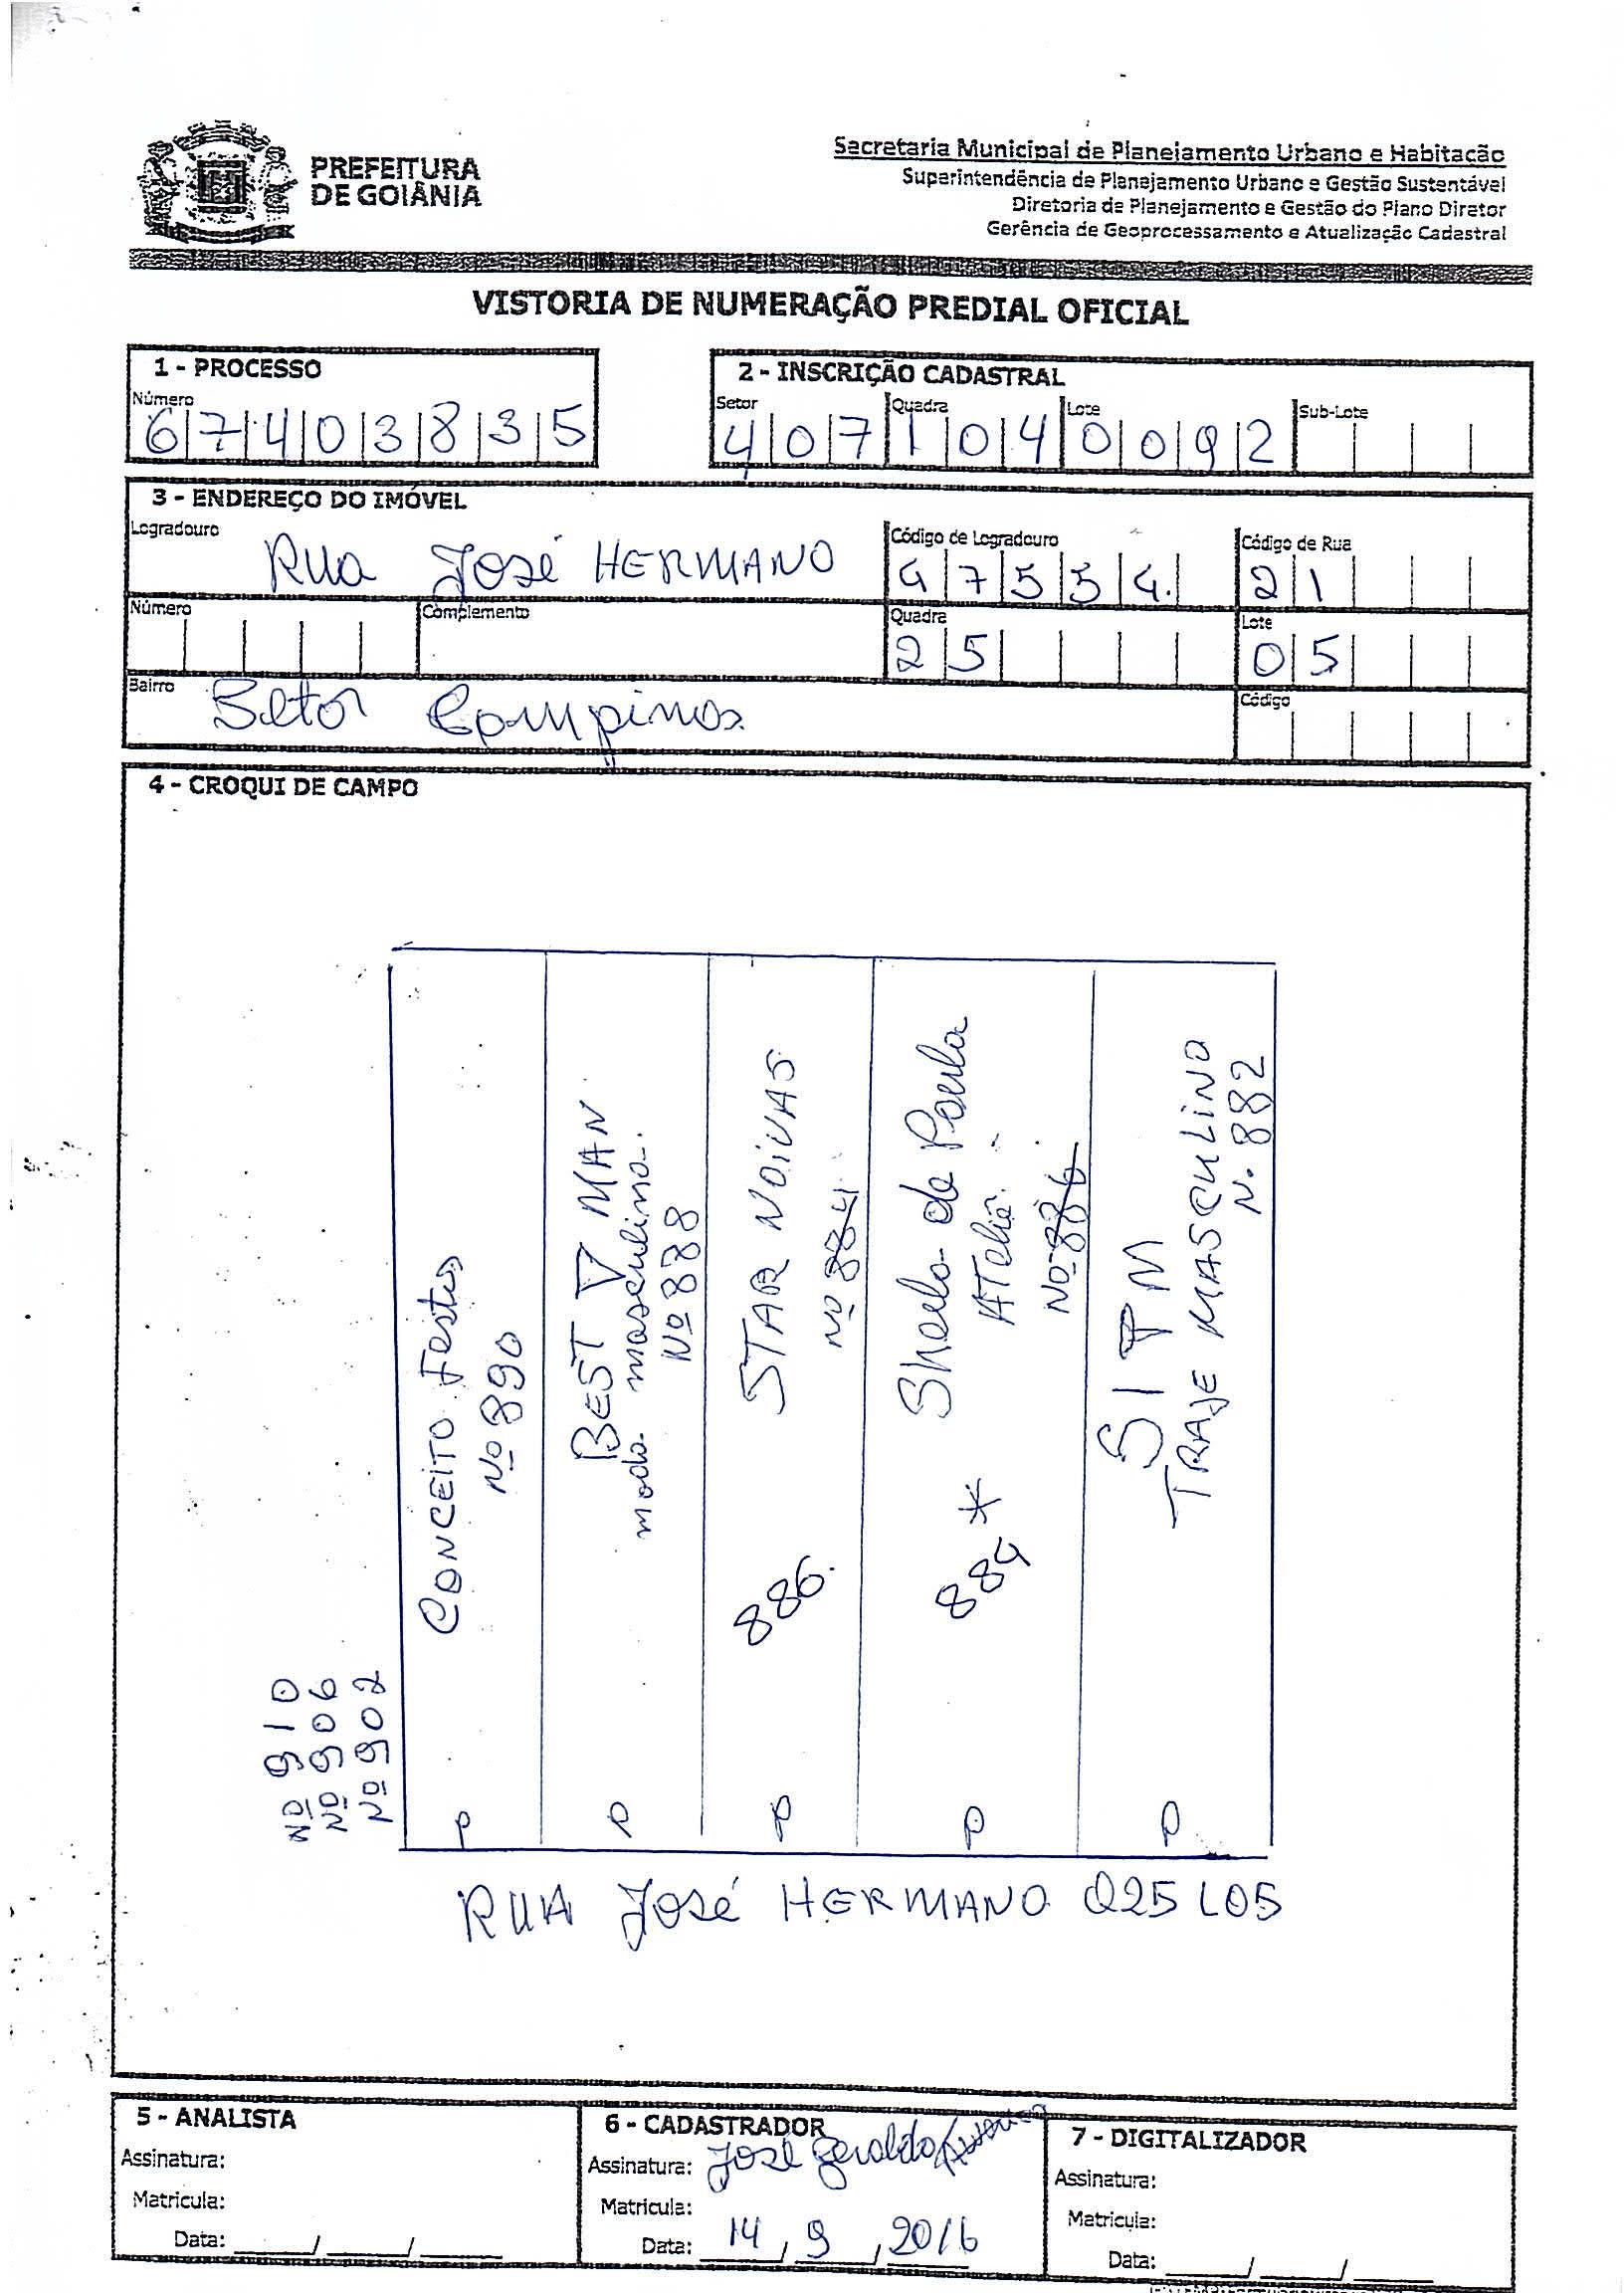 PREFEITURA
DE GOIÂNIA
Secretaria Municipal de Planejamento Urbano e Habitação
Superintendência de Planejamento Urbano e Gestão Sustentável
Diretoria de Planejamento e Gestão do Plano Diretor
Gerência de Geoprocessamento e Atualização Cadastral
VISTORIA DE NUMERAÇÃO PREDIAL OFICIAL
1 - PROCESSO
Número
67403835
2 - INSCRIÇÃO CADASTRAL
Setor Quadra Lote Sub-Lote
407 104 0092
3 - ENDEREÇO DO IMÓVEL
Logradouro Rua José HERMANO
Código de Logradouro 47554.
Código de Rua 21
Número
Complemento
Quadra 25
Lote 05
Bairro Setor Campinas
Código
4 - CROQUI DE CAMPO
Nº 910
Nº 906
Nº 902
CONCEITO Festas
Nº 890
P
BEST V MAN
moda masculina.
Nº 888
P
STAR NOIVAS
Nº 884
886.
P
Sheila de Paula
ATeliê.
Nº 886
884 *
P
SITM
TRAJE MASCULINO
N. 882
P
RUA José HERMANO Q25 L05
5 - ANALISTA
Assinatura:
Matricula:
Data: ___/___/___
6 - CADASTRADOR
Assinatura: José Geraldo
Matricula:
Data: 14/9/2016
7 - DIGITALIZADOR
Assinatura:
Matricula:
Data: ___/___/___